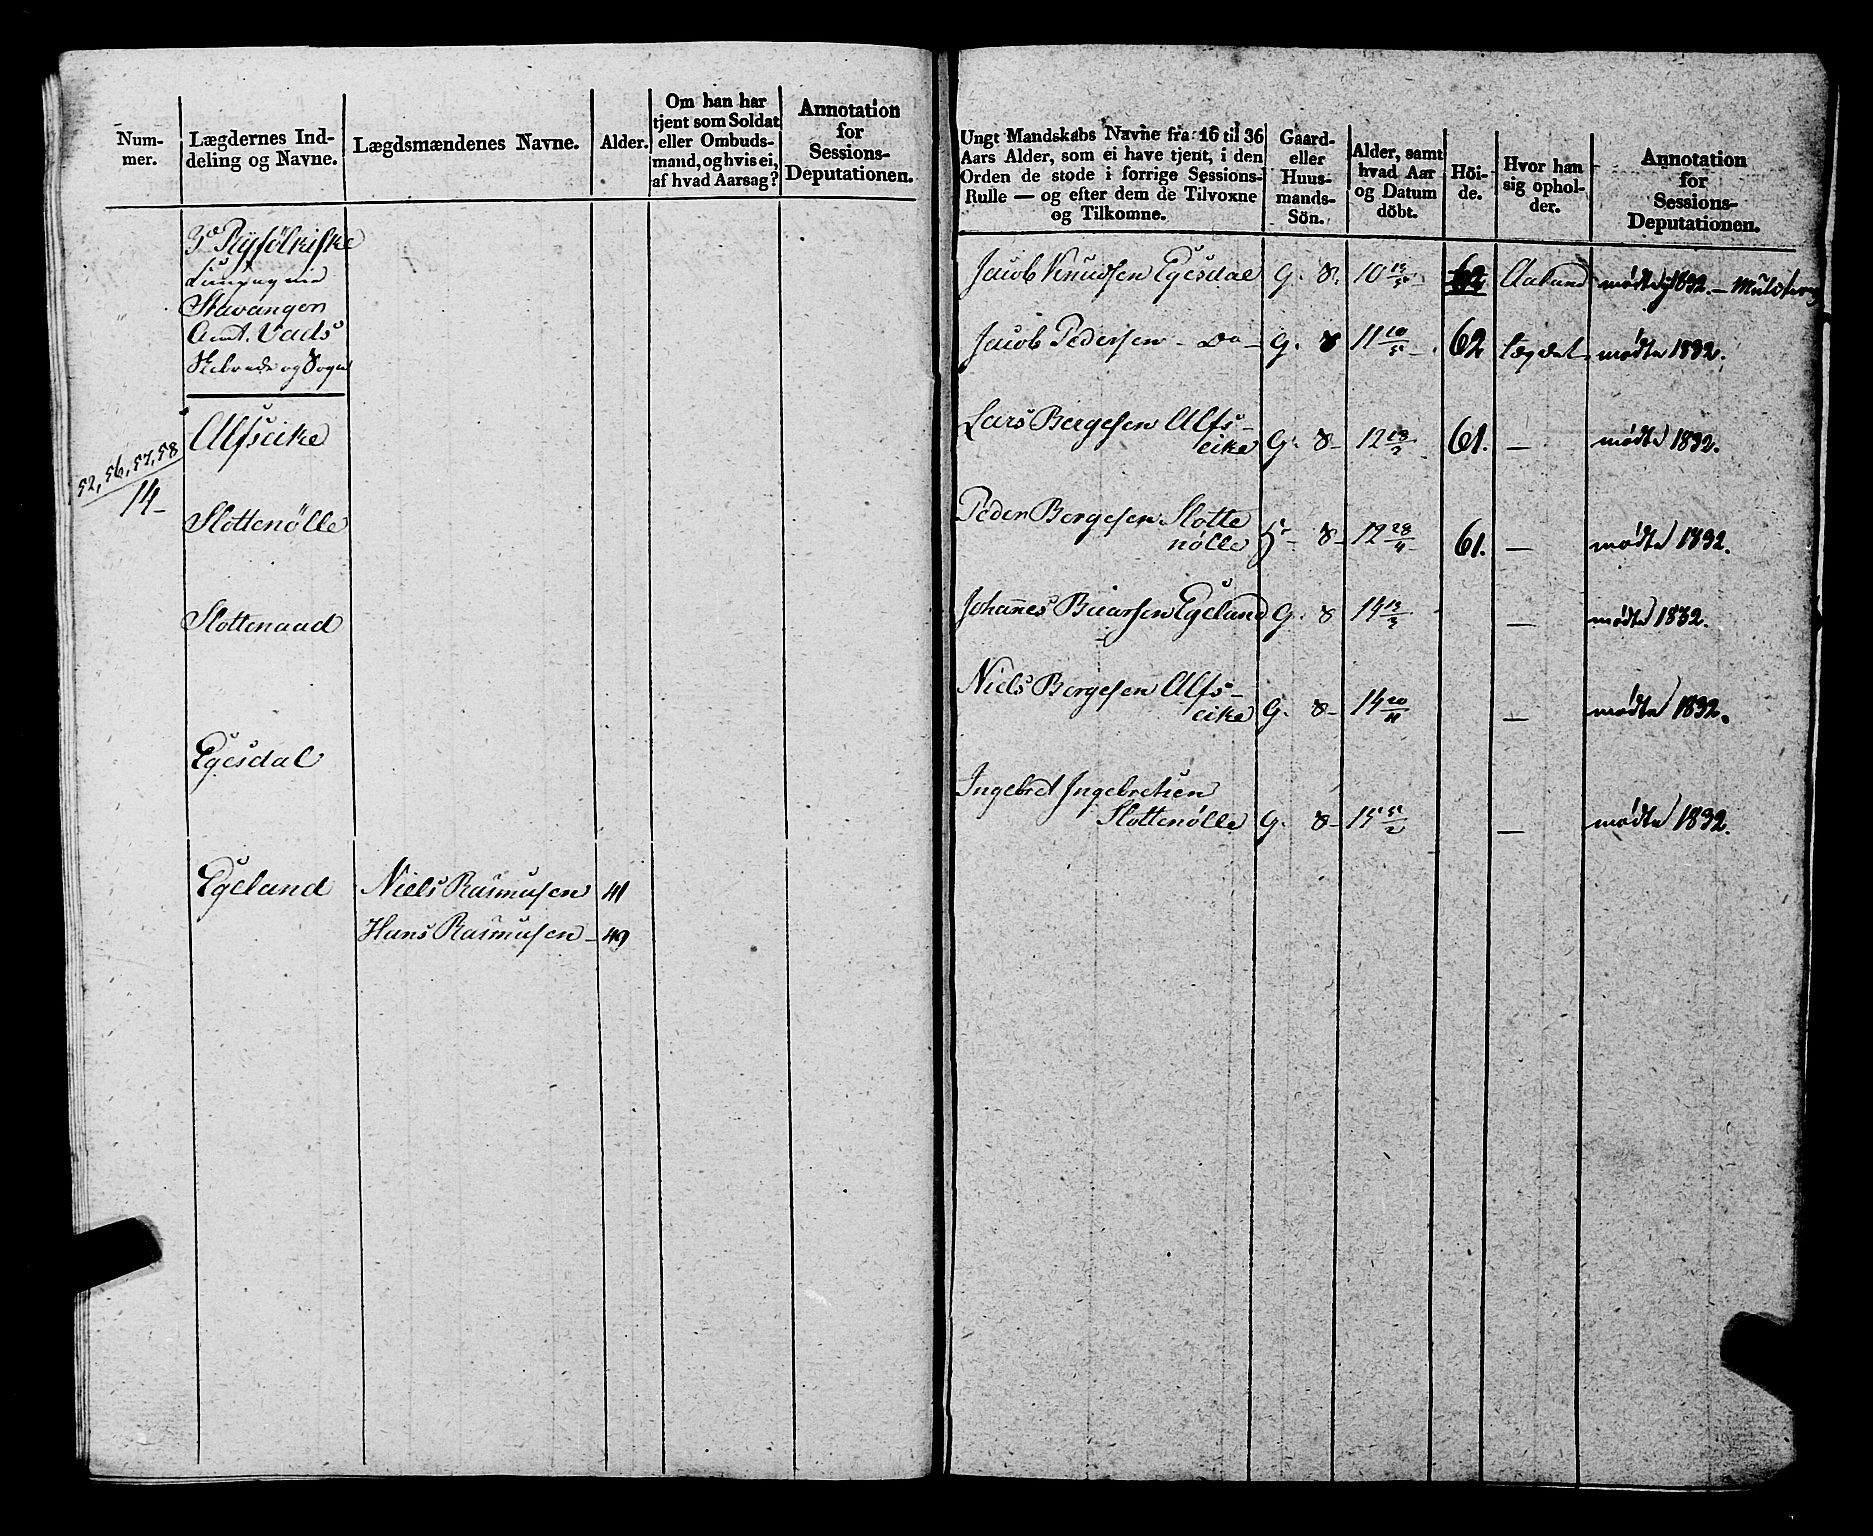 Num-
mer.
Lægdernes Ind-
deling og Navne.
Lægdsmændenes Navne.
Alder.
Om han har
tjent som Soldat
eller Ombuds-
mand, og hvis ei,
af hvad Aarsag?
Annotation
for
Sessions-
Deputationen.
3d Ryfølkiske
Stavanger
Amt.
og Sogn
Alfseike
52, 56, 57, 58
14-
Slottenølle
Slottenaad
Egesdal
Egeland Niels Rasmusen 41
Hans Rasmusen - 49
Ungt Mandskabs Navne fra 16 til 36
Aars Alder, som ei have tjent, i den
Orden de stode i forrige Sessions-
Rulle — og efter dem de Tilvoxne
og Tilkomne.
Gaard-
eller
Huus-
mands-
Sön.
Alder, samt
hvad Aar
og Datum
döbt.
Höi-
de.
Hvor han
sig ophol-
der.
Annotation
for
Sessions-
Deputationen.
Jacob Knudsen Egesdal G. 8. 10 62 mødte 1832. -
Jacob Pedersen - Do - G. 8 11 10/5 - 62 Lægdet mødte 1832.
Lars Bergesen Alfs-
eike G. 8 - 12 61. - mødte 1832.
Peder Bergesen Slotte
nølle 8 - 12 28/4 61. - mødte 1832.
Johannes Egeland G. 8 14 - mødte 1832.
Niels Bergesen Alfs-
eike G. 8 - 14 20/11 - mødte 1832.
Ingebret Ingebretsen
Slottenølle G. 8 - 15 5/2 - mødte 1832.